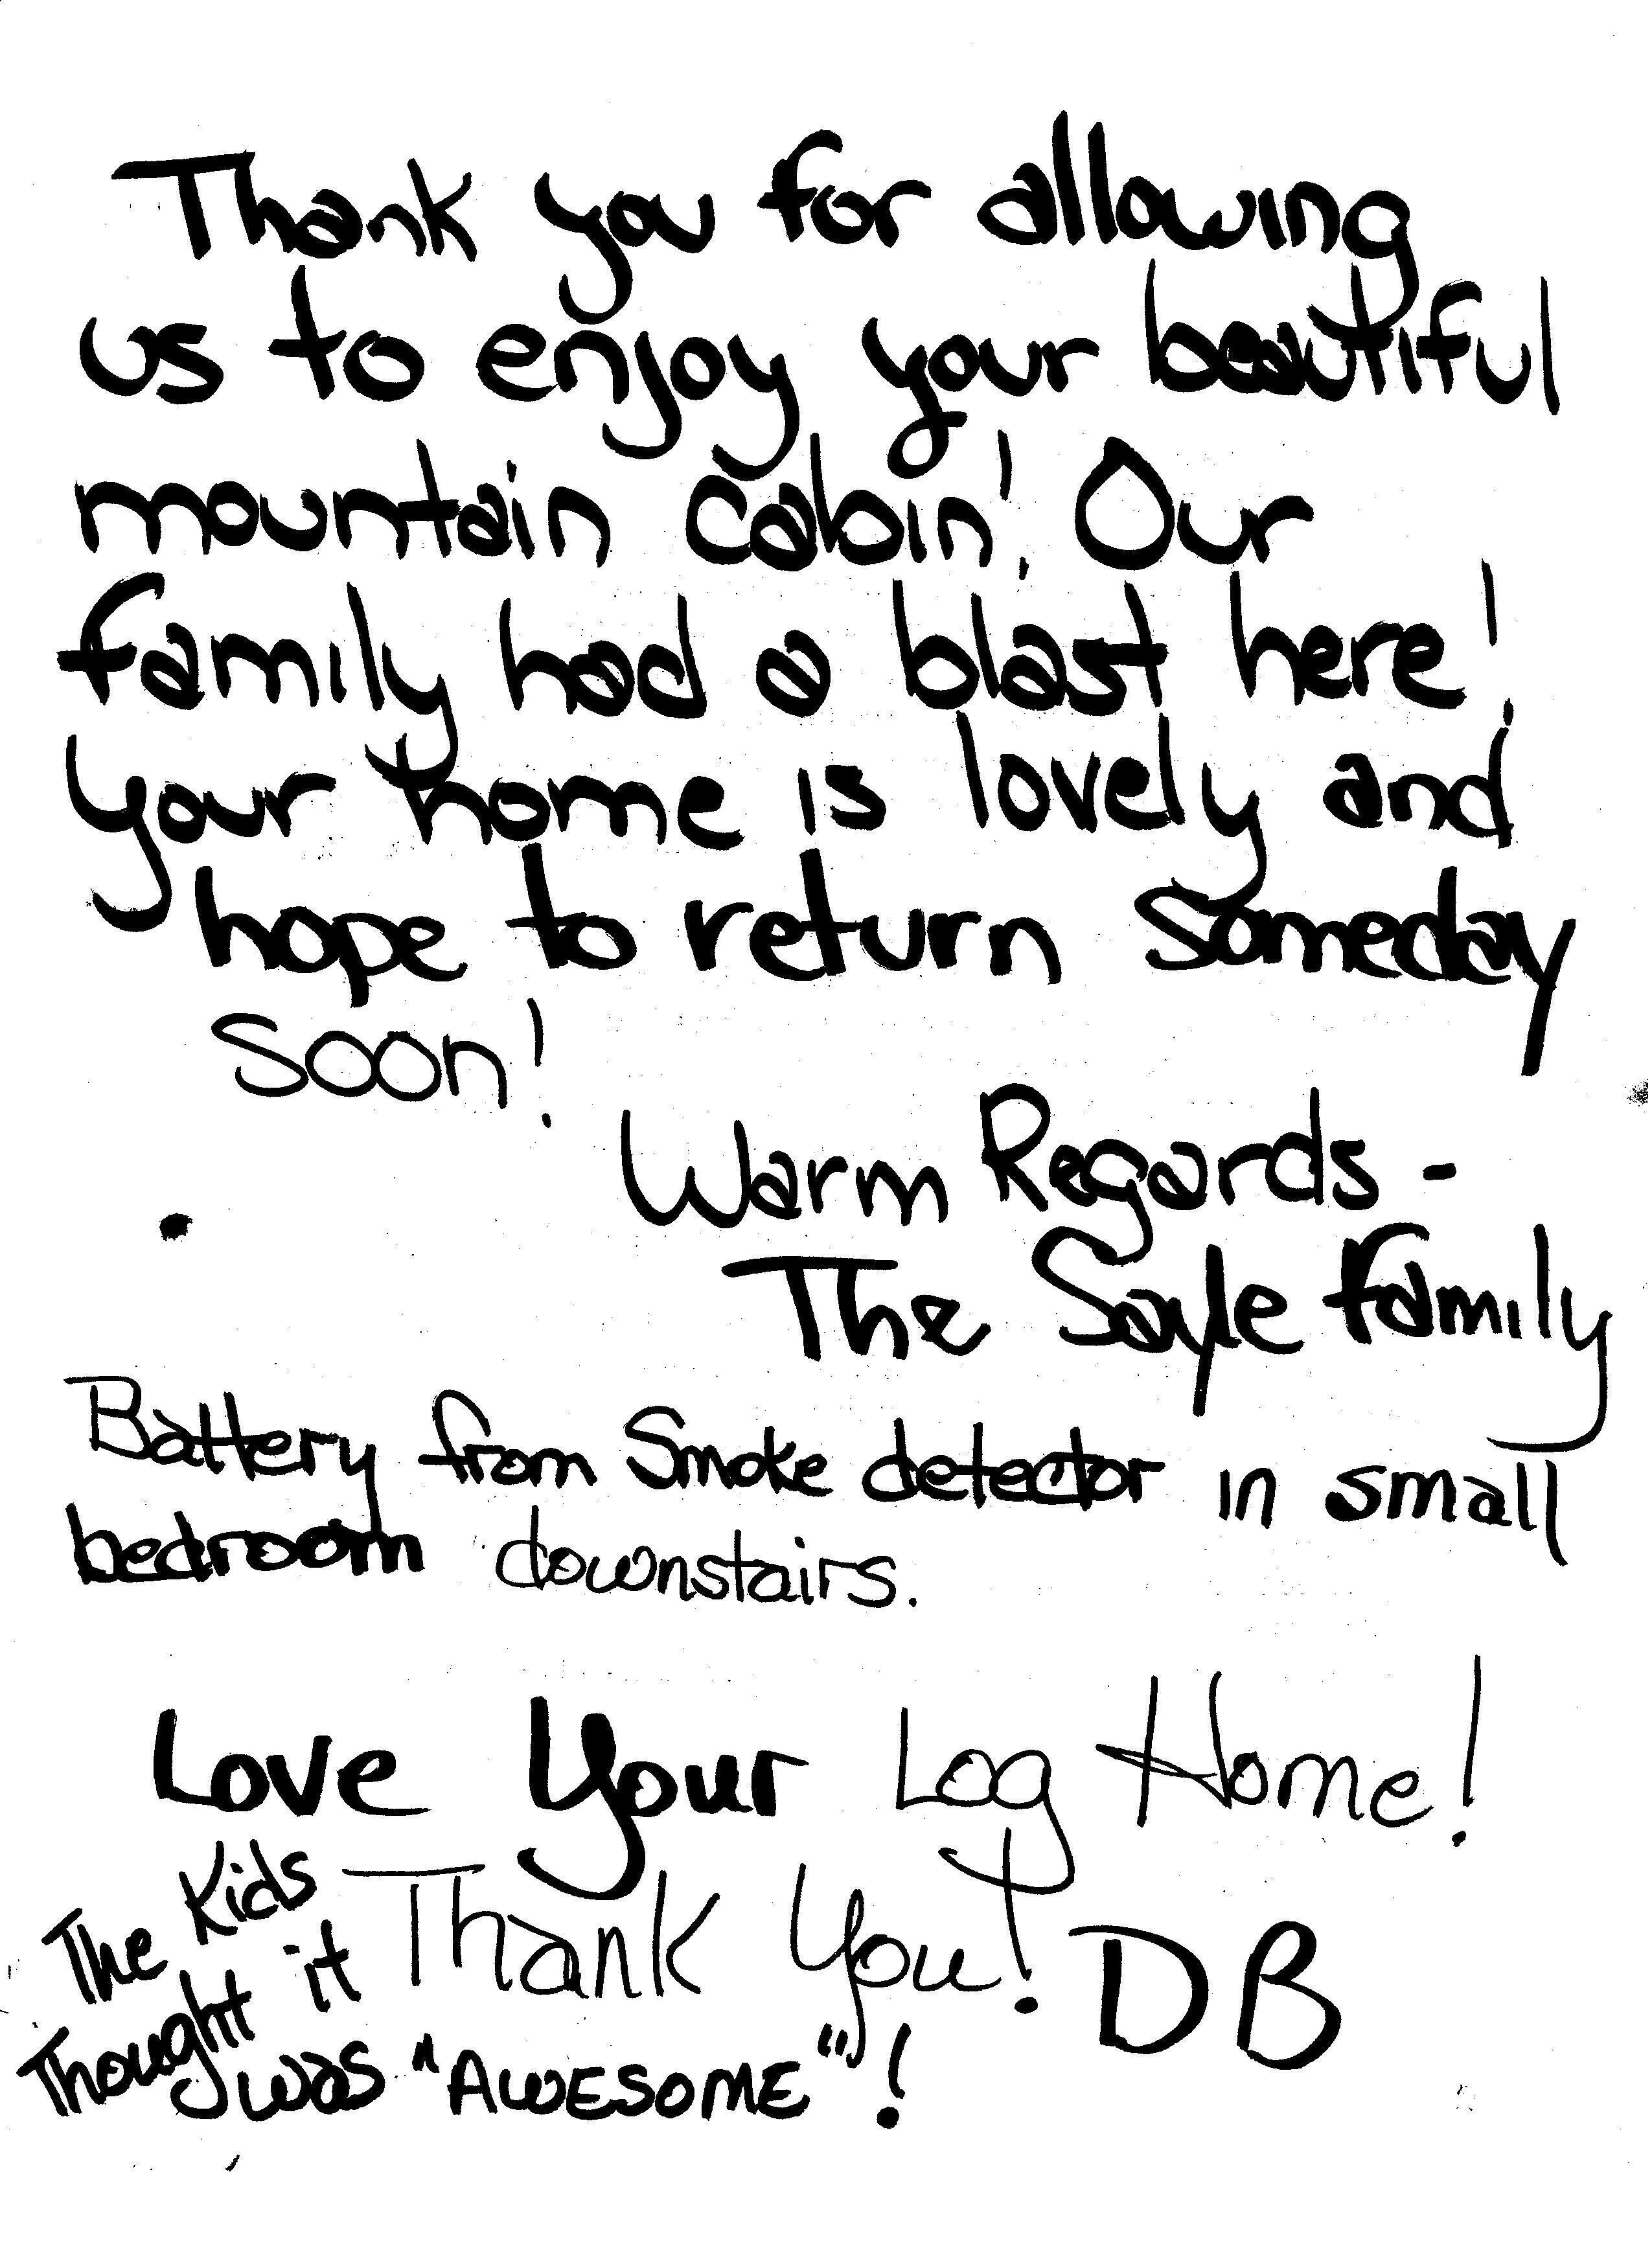 Thank you for allowing
us to enjoy your beautiful
mountain cabin! Our
family had a blast here!
Your home is lovely and
hope to return someday
soon!
Warm Regards -
The Sayle Family
Battery from Smoke detector in small
bedroom downstairs.
Love Your Log Home!
Thank You! DB
The Kids
Thought it
was "AWESOME"!